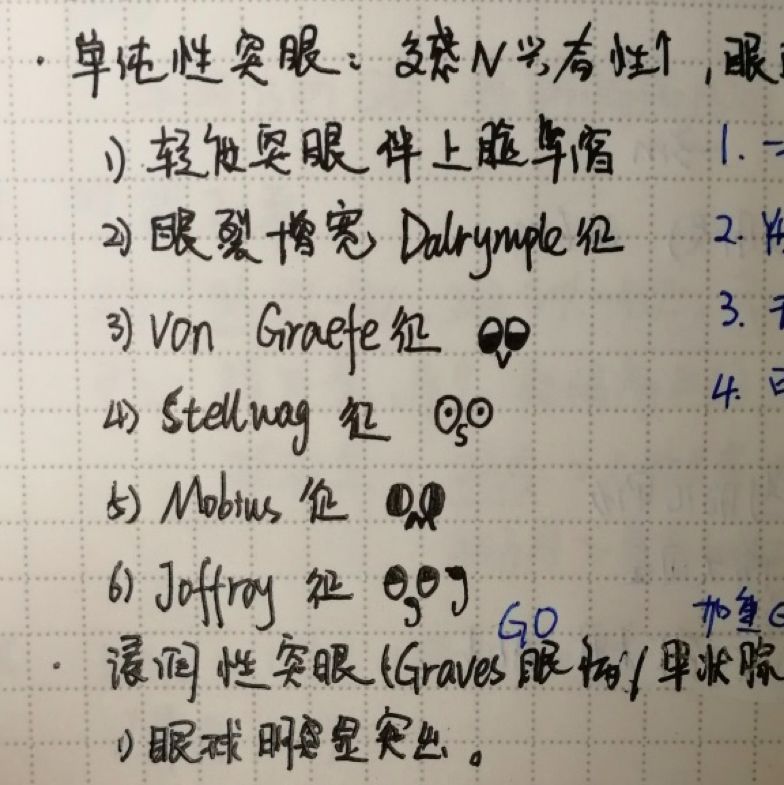 · 单纯性突眼：交感N兴奋性↑，眼
1) 轻度突眼伴上睑挛缩 1.
2) 眼裂增宽 Dalrymple 征 2.
3) Von Graefe 征 3.
4) Stellwag 征 4.
5) Mobius 征
6) Joffroy 征
GO 加重G
· 浸润性突眼(Graves眼病/甲状腺
1) 眼球明显突出。